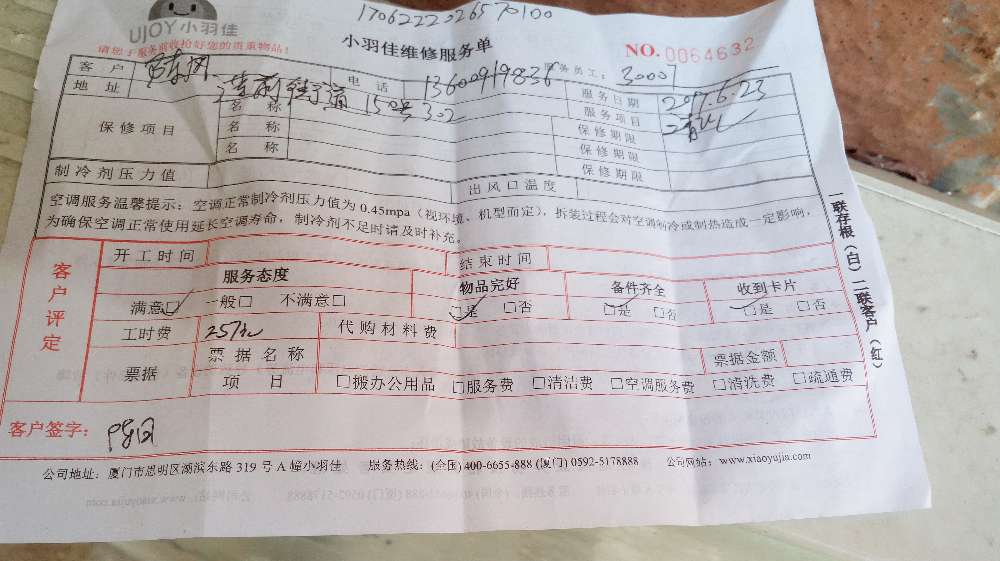 170622202657​0100
UJOY小羽佳
请您于服务前收拾好您的贵重物品！
小羽佳维修服务单
NO.0064632
客户 电话 13600919836 服务员工：30007
地址 150号302 服务日期 2017.6.23
保修项目 名称 服务项目
名称 保修期限
名称 保修期限
保修期限
制冷剂压力值 出风口温度
空调服务温馨提示：空调正常制冷剂压力值为0.45mpa（视环境、机型而定），拆装过程会对空调制冷或制热造成一定影响，
为确保空调正常使用延长空调寿命，制冷剂不足时请及时补充。
客户评定
开工时间 结束时间
服务态度 物品完好 备件齐全 收到卡片
满意☑ 一般□ 不满意□ ☑是 □否 ☑是 □否 ☑是 □否
工时费 257元 代购材料费
票据 票据名称 票据金额
项目 □搬办公用品 □服务费 □清洁费 □空调服务费 □清洗费 □疏通费
客户签字：
一联存根（白）二联客户（红）
公司地址：厦门市思明区湖滨东路319号A幢小羽佳 服务热线：(全国)400-6655-888 (厦门) 0592-5178888 公司网站：www.xiaoyujia.com